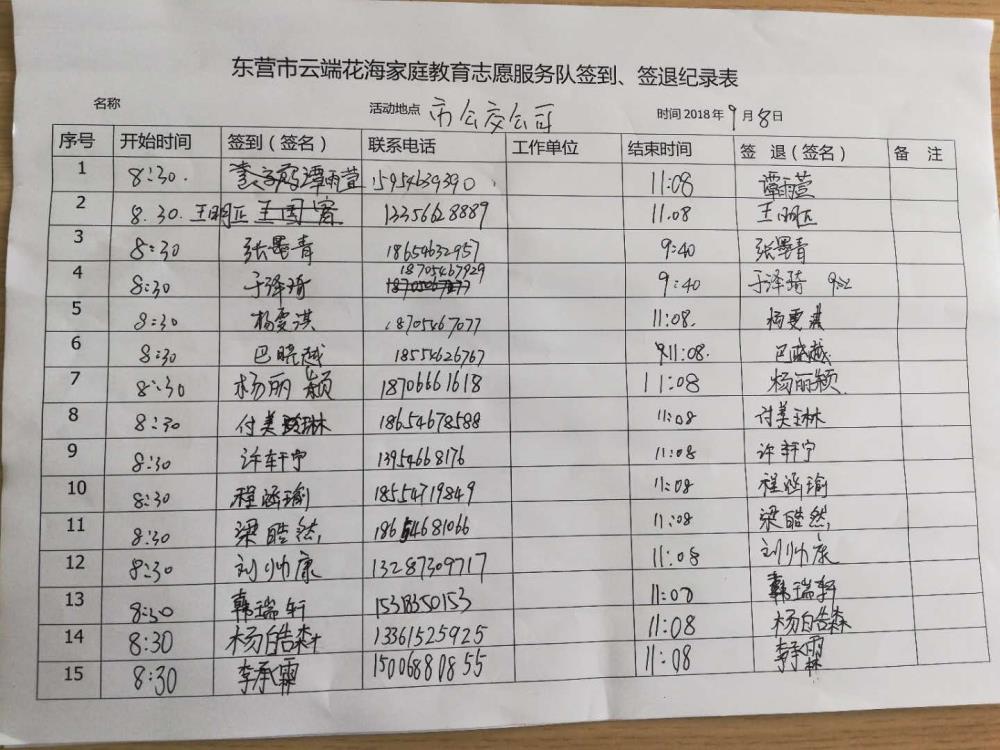 东营市云端花海家庭教育志愿服务队签到、签退纪录表
名称 活动地点 市公交公司 时间2018年9月8日
序号 开始时间 签到（签名） 联系电话 工作单位 结束时间 签 退（签名） 备 注
1 8:30. 谭雨萱 15954639390 11:08 谭雨萱
2 8.30. 王明正 13356628889 11.08 王明正
3 8:30 张墨青 18654632957 9:40 张墨青
4 8:30 于泽琦 18705467929 9:40 于泽琦
5 8:30 杨雯淇 18705467077 11:08. 杨雯淇
6 8:30 巴晓越 18554626767 11:08. 巴晓越
7 8:30 杨丽颖 18706661618 11:08 杨丽颖
8 8:30 付美琳 18654678588 11:08 付美琳
9 8:30 许轩宁 13954668176 11:08 许轩宁
10 8:30 程涵瑜 18554719849 11:08 程涵瑜
11 8:30 梁皓然 18654681066 11:08 梁皓然
12 8:30 刘帅康 13287309717 11:08 刘帅康
13 8:30 韩瑞轩 15318350153 11:08 韩瑞轩
14 8:30 杨皓森 13361525925 11:08 杨皓森
15 8:30 李承霖 15006880855 11:08 李承霖